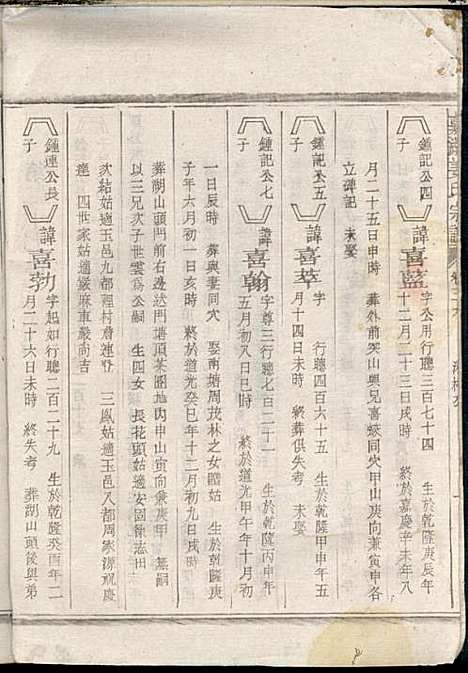 鍾記公四
子
諱喜藍
字公用行聽三百七十四　生於乾隆庚辰年
十二月二十三日戌時　終於嘉慶辛未年八
月二十五日申時　葬外前突山與兄喜蛟同穴甲山庚向兼寅申各
立碑記　未娶
鍾記公五
子
諱喜萃
字　行聽四百六十五　生於乾隆甲申年五
月十四日未時　終葬俱失考　未娶
鍾記公七
子
諱喜翰
字尊三行聽七百二十一　生於乾隆庚申年
五月初八日巳時　終於道光甲午年十月初
一日辰時　葬與妻同穴　娶南塘周茂林之女國姑　生於乾隆庚
子年六月初一日亥時　終於道光癸巳年十二月初九日戌時　合
葬湖山頭門前右邊述門頂茶園地內申山寅向兼庚甲　無嗣
以三兄次子世雲為公嗣　生四女　長花頭姑適安固陳志田
次結姑適玉邑九都裡村詹連科　三鳳姑適玉邑八都周家源祝慶
產　四世家姑適嚴麻車嚴尚吉
鍾連公長
子
諱喜勃
字起如行聽二百二十九　生於乾隆癸酉年二
月二十六日未時　終失考　葬湖山頭後與弟